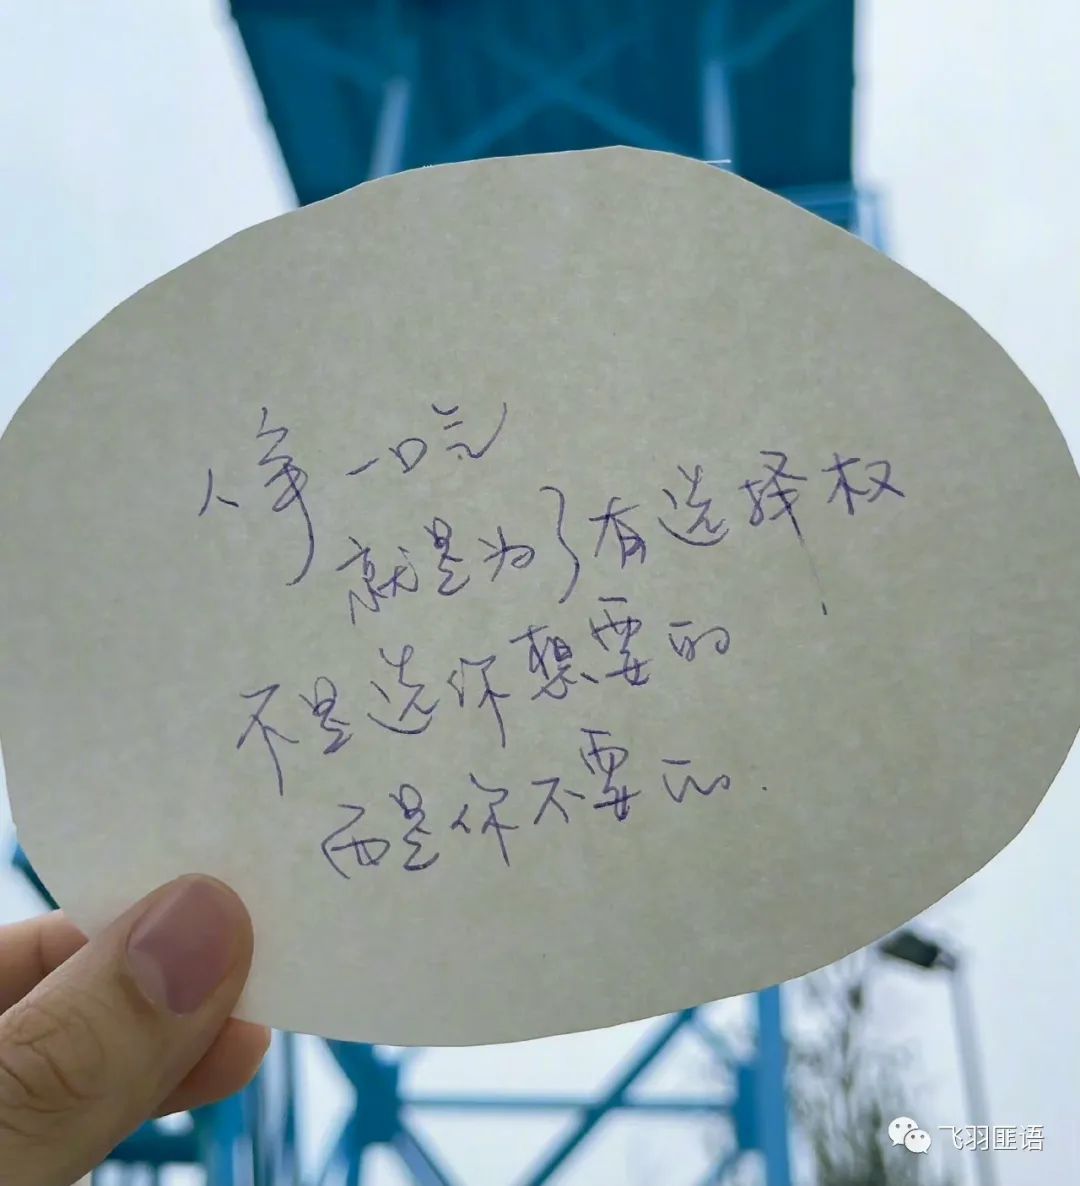 人争一口气
就是为了有选择权
不是选你想要的
而是你不要的.
飞羽匪语